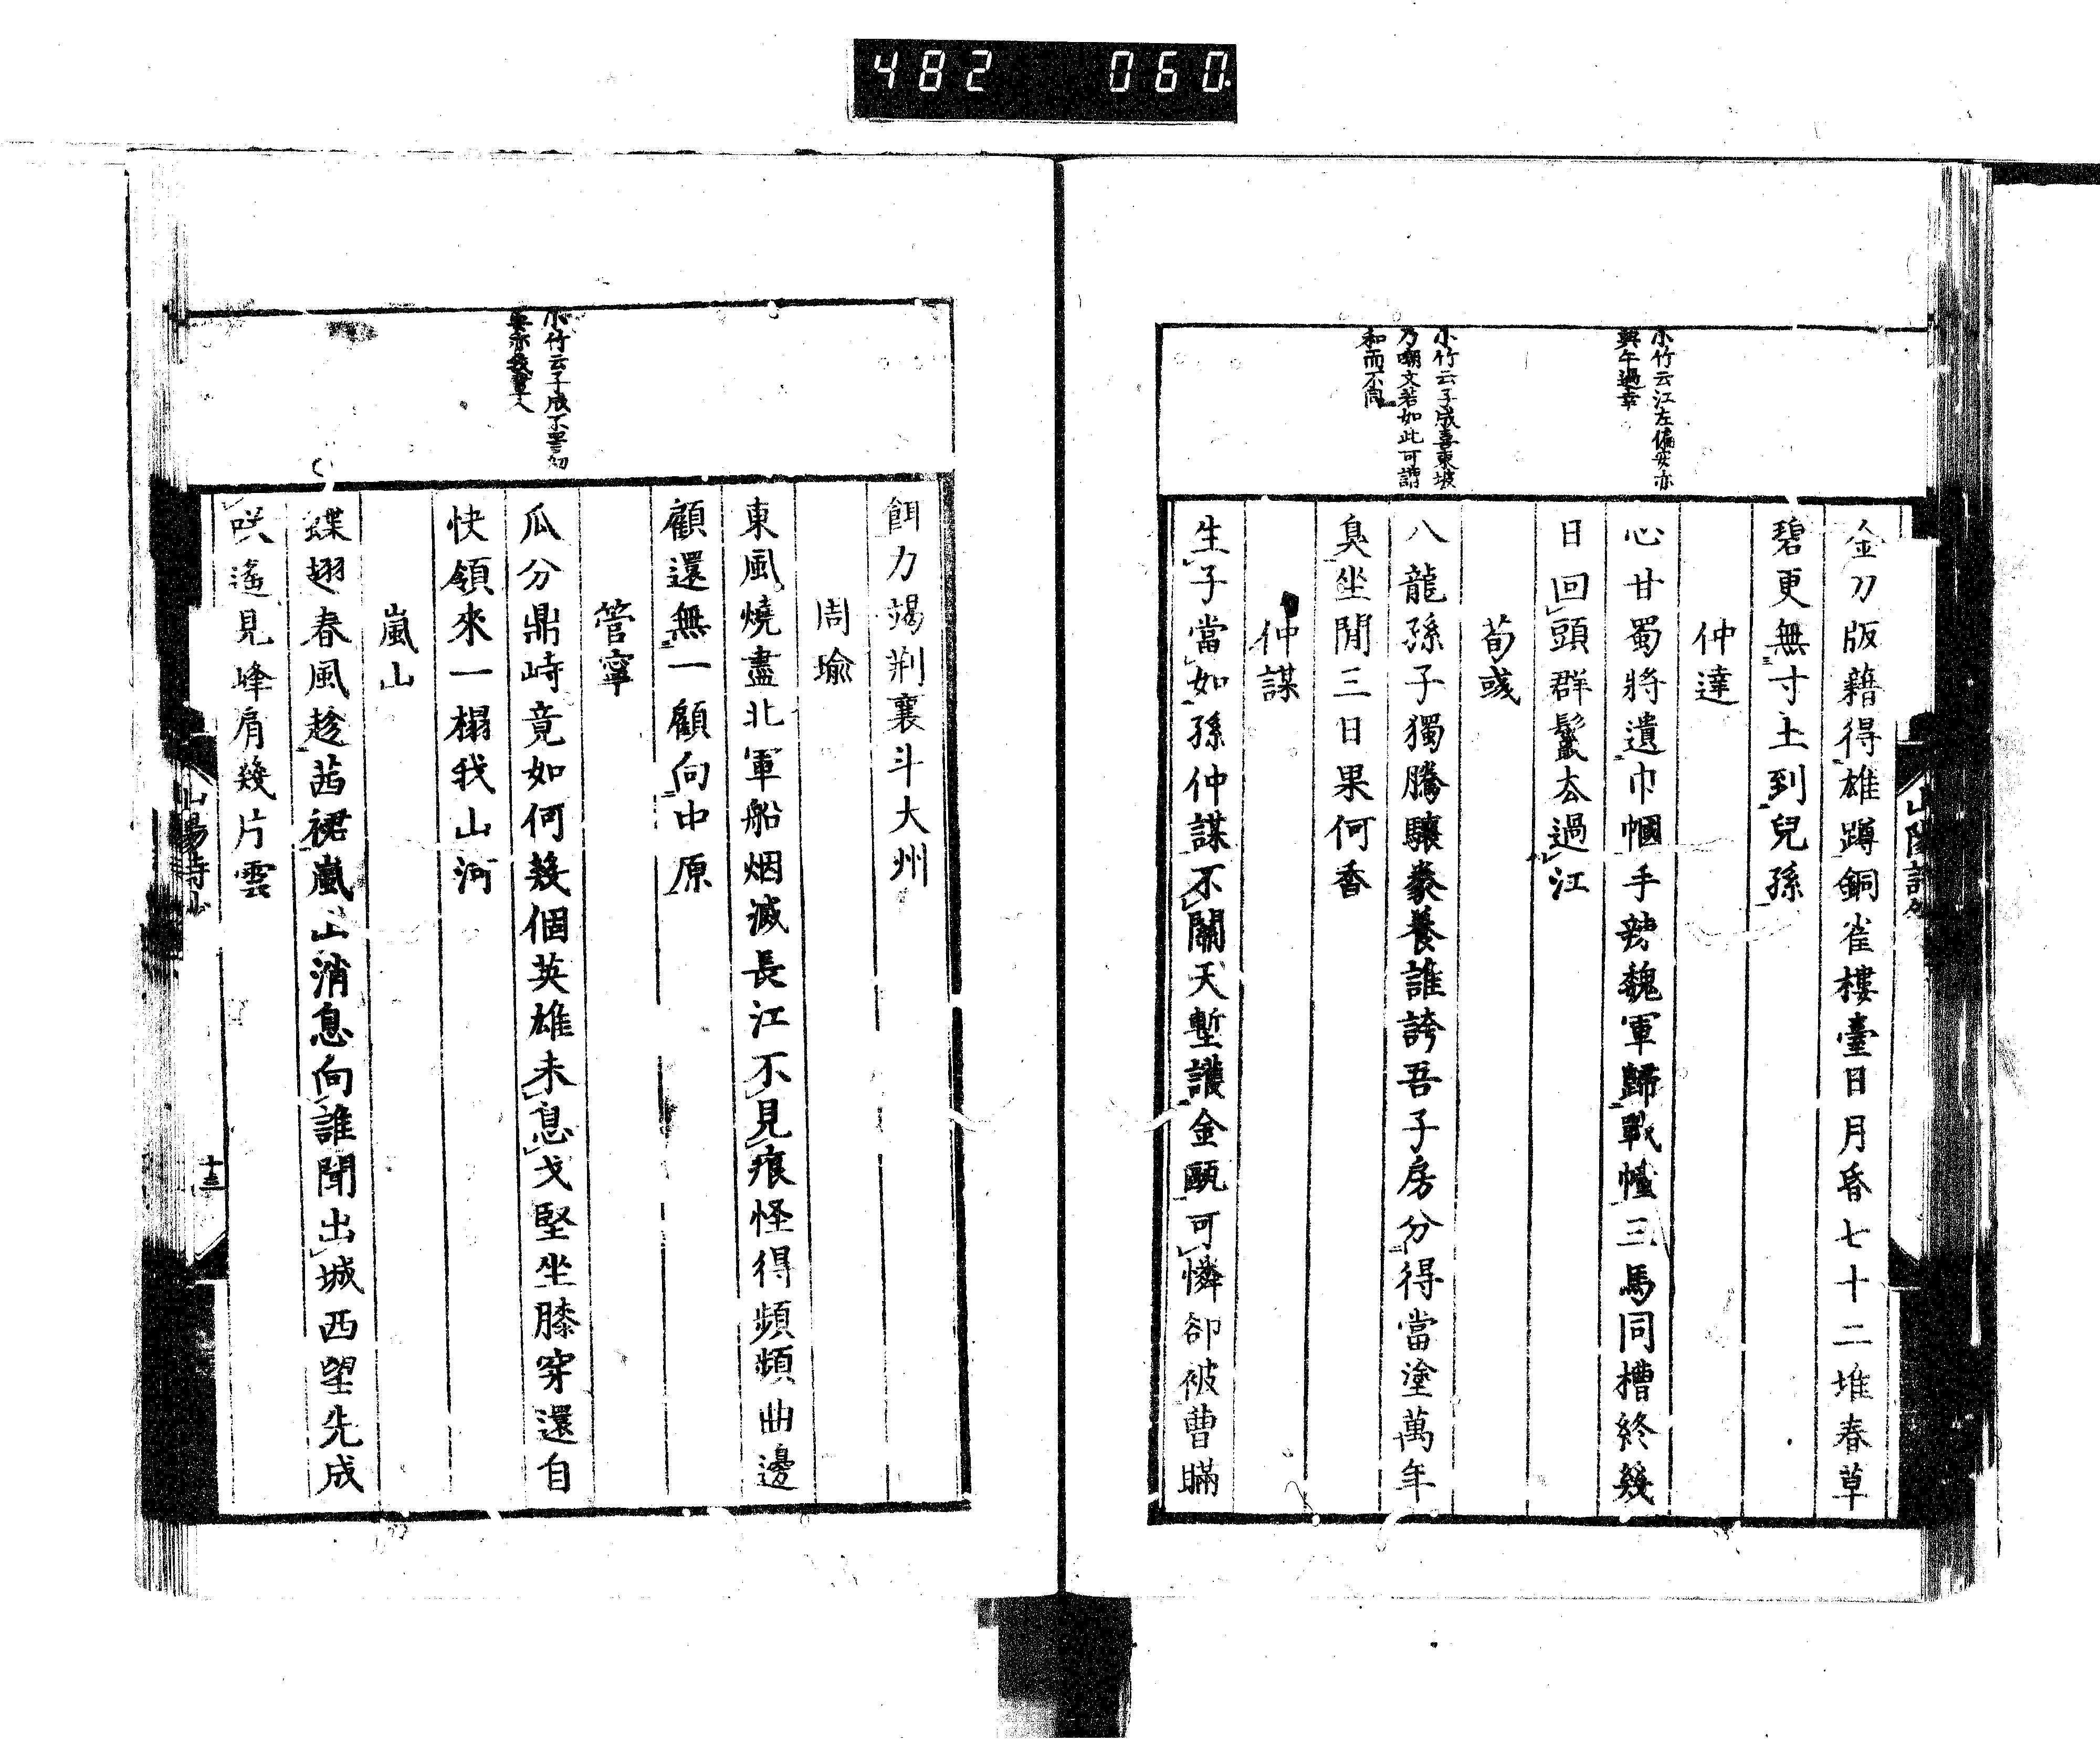 482 060
小竹云江左偏安亦
小竹云子成喜東坡
乃嘲文若如此可謂
和而不同
金刀版籍得雄蹲銅雀樓臺日月昏七十二堆春草
碧更無寸土到兒孫
仲達
心甘蜀將遺巾幗手辣魏軍歸戰幢三馬同槽終幾
日回頭群鬣去過江
荀彧
八龍孫子獨騰驤豢養誰誇吾子房分得當塗萬年
臭坐閒三日果何香
仲謀
生子當如孫仲謀不關天塹護金甌可憐卻被曹瞞
餌力竭荊襄斗大州
周瑜
東風燒盡北軍船烟滅長江不見痕怪得頻頻曲邊
顧還無一顧向中原
管寧
瓜分鼎峙竟如何幾個英雄未息戈堅坐膝穿還自
快領來一榻我山河
嵐山
蝶翅春風趁茜裙嵐山消息向誰聞出城西望先成
咲遙見峰肩幾片雲
十三